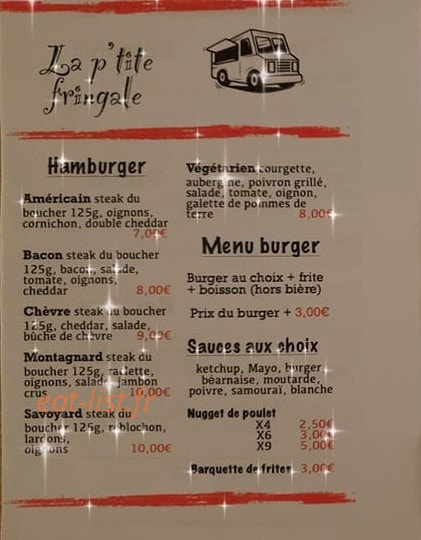 La p'tite
fringale
Hamburger
Américain steak du
boucher 125g, oignons,
cornichon, double cheddar
7,00€
Bacon steak du boucher
125g, bacon, salade,
tomate, oignons,
cheddar 8,00€
Chèvre steak du boucher
125g, cheddar, salade,
bûche de chèvre 9,00€
Montagnard steak du
boucher 125g, raclette,
oignons, salade, jambon
crus 10,00€
eat-list.fr
Savoyard steak du
boucher 125g, reblochon,
lardons,
oignons 10,00€
Végétarien courgette,
aubergine, poivron grillé,
salade, tomate, oignon,
galette de pommes de
terre 8,00€
Menu burger
Burger au choix + frite
+ boisson (hors bière)
Prix du burger + 3,00€
Sauces aux choix
ketchup, Mayo, burger
béarnaise, moutarde,
poivre, samouraï, blanche
Nugget de poulet
X4 2,50€
X6 3,00€
X9 5,00€
Barquette de frites 3,00€